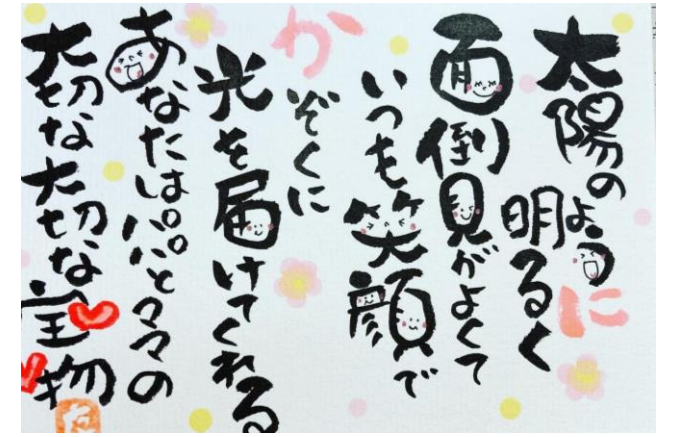 太陽のように
明るく
面倒見がよくて
いつも笑顔で
かぞくに
光を届けてくれる
あなたはパパとママの
大切な大切な宝物